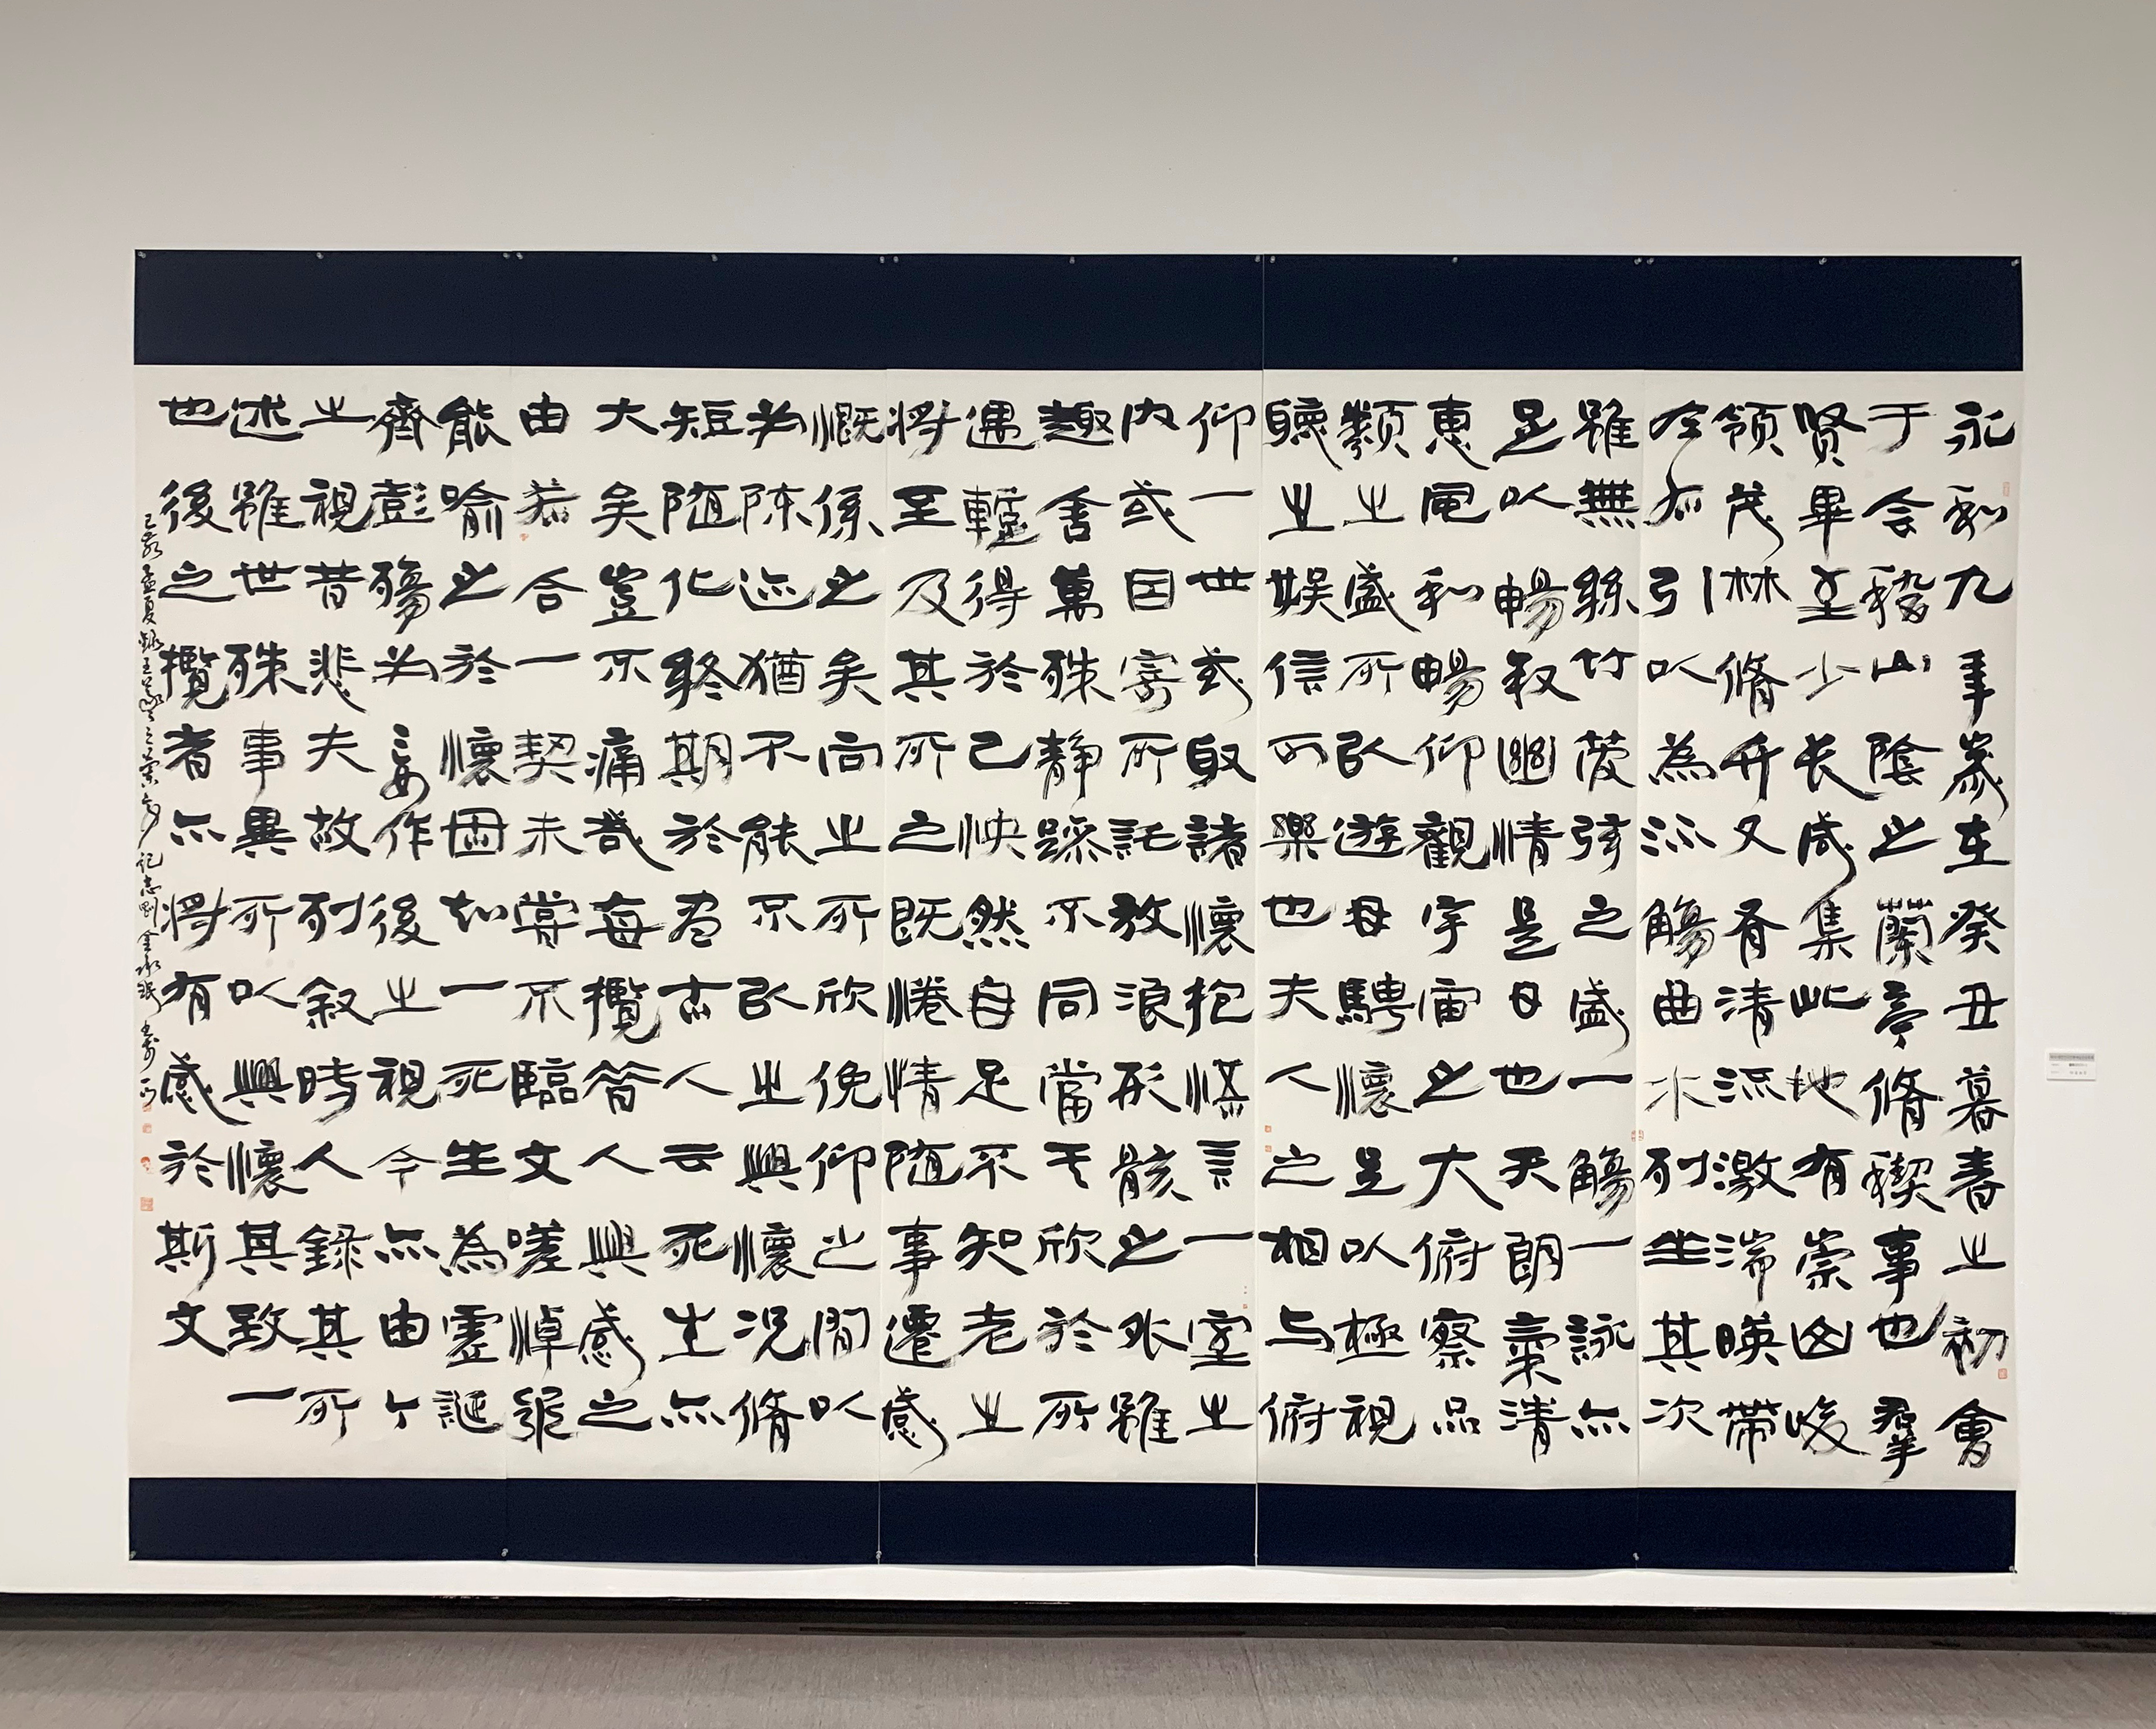 永和九年嵗在癸丑暮春之初會
于会稽山陰之蘭亭脩稧事也羣
贤畢至少长咸集此地有崇山峻
領茂林脩竹又有清流激湍暎帶
左右引以為流觴曲水列坐其次
雖無絲竹管弦之盛一觴一詠亦
足以暢叙幽情是日也天朗氣清
惠風和暢仰觀宇宙之大俯察品
類之盛所以遊目騁懷足以極視
聽之娱信可樂也夫人之相与俯
仰一世或取諸懷抱悟言一室之
内或因寄所託放浪形骸之外雖
趣舍萬殊静躁不同當其欣於所
遇蹔得於己怏然自足不知老之
將至及其所之既惓情随事遷感
慨係之矣向之所欣俛仰之間以
为陈迹猶不能不以之興懷况脩
短随化終期於盡古人云死生亦
大矣豈不痛哉每攬昔人興感之
由若合一契未嘗不臨文嗟悼不能
喻之於懷固知一死生為虛誕
齊彭殤为妄作後之視今亦由今
之視昔悲夫故列叙時人録其所
述雖世殊事異所以興懷其致一
也後之攬者亦將有感於斯文
己亥孟夏録王羲之蘭亭記志剛金永